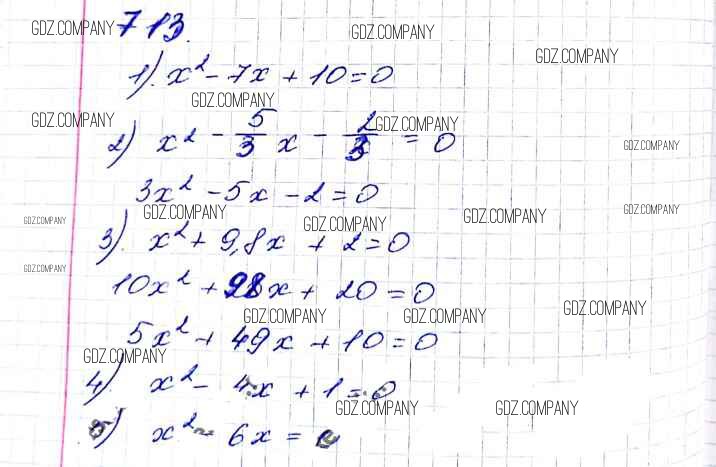 GDZ.COMPANY 713. GDZ.COMPANY
GDZ.COMPANY
1). x² - 7x + 10 = 0
GDZ.COMPANY
GDZ.COMPANY GDZ.COMPANY
2) x² - 5/3 x - 2/3 = 0
GDZ.COMPANY
3x² - 5x - 2 = 0
GDZ.COMPANY GDZ.COMPANY GDZ.COMPANY GDZ.COMPANY GDZ.COMPANY
3). x² + 9,8x + 2 = 0
GDZ.COMPANY
10x² + 98x + 20 = 0
GDZ.COMPANY GDZ.COMPANY GDZ.COMPANY
5x² + 49x + 10 = 0
GDZ.COMPANY
4). x² - 4x + 1 = 0
GDZ.COMPANY GDZ.COMPANY
5) x² - 6x = 0